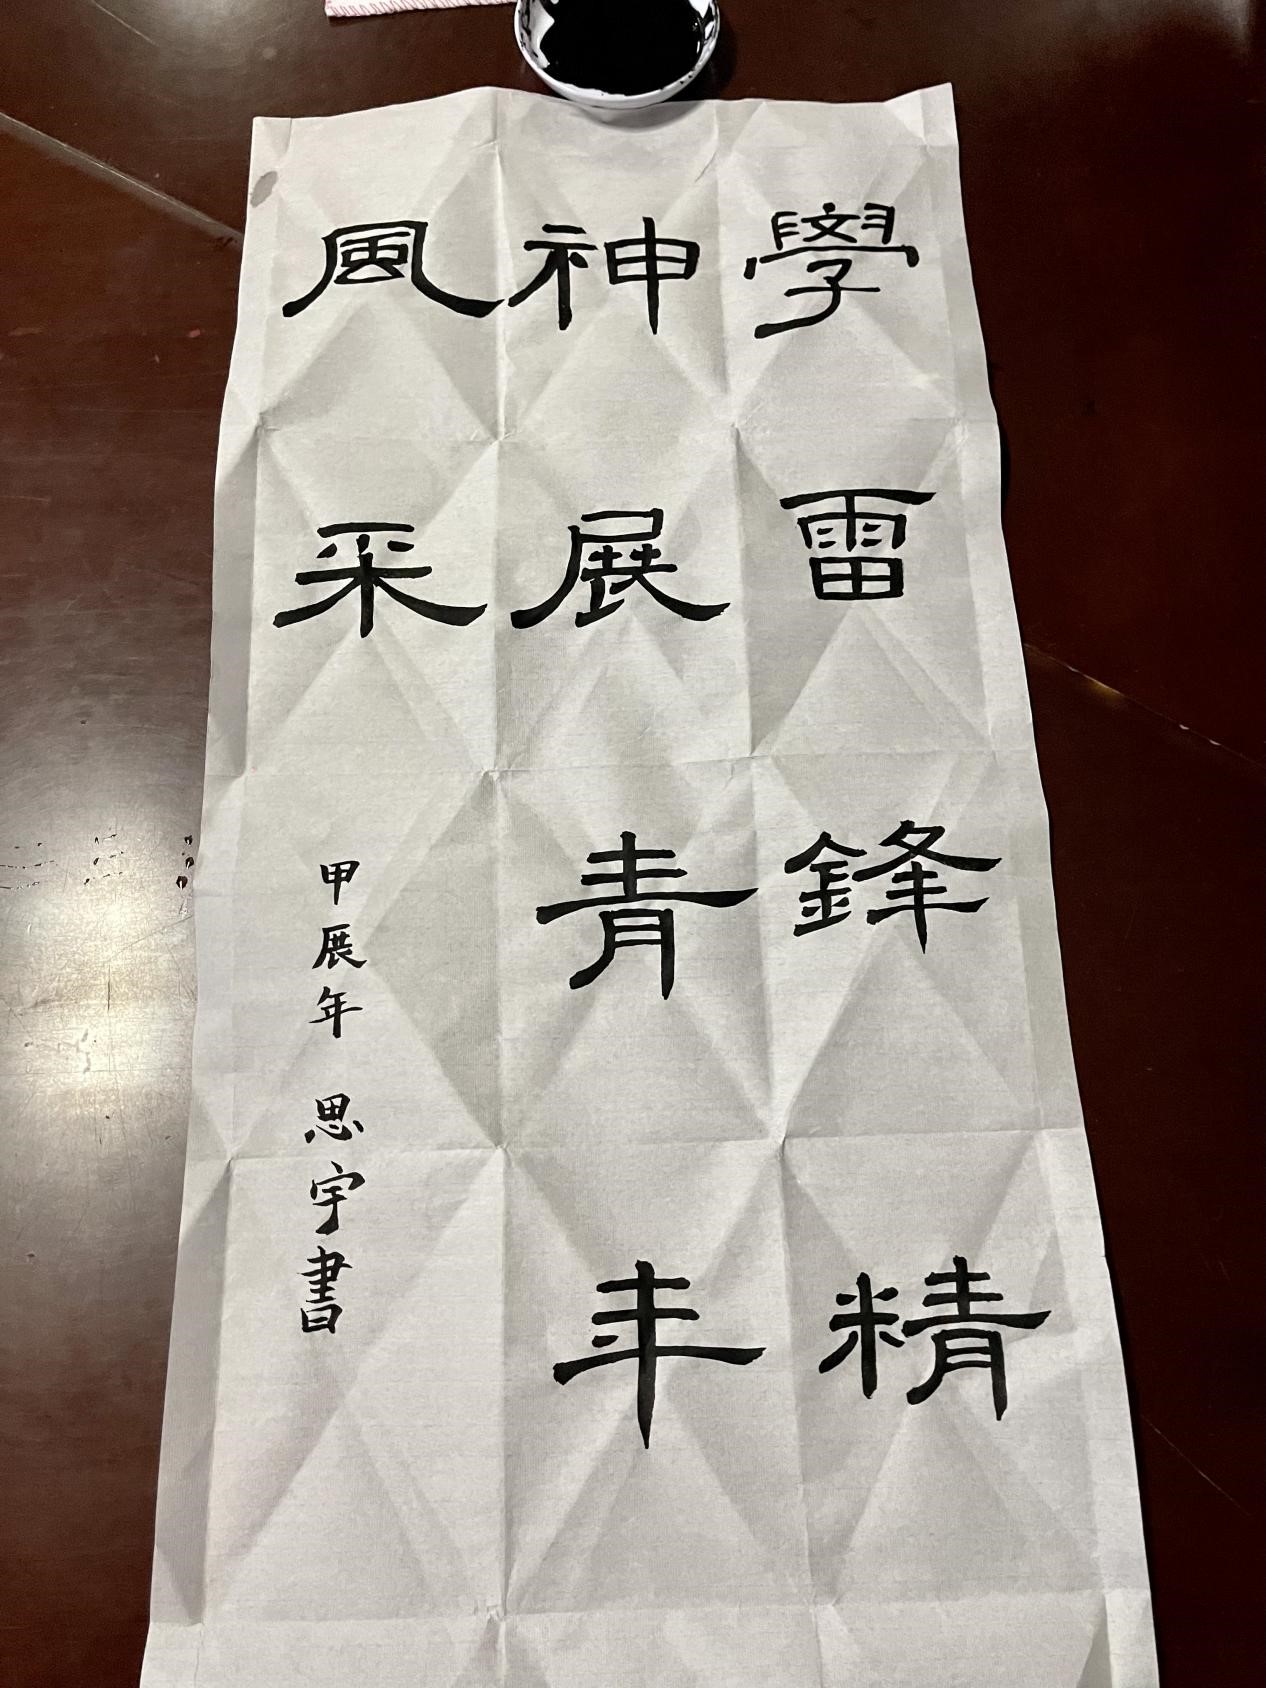 學雷鋒精
神展青年
風采
甲展年 思宇書